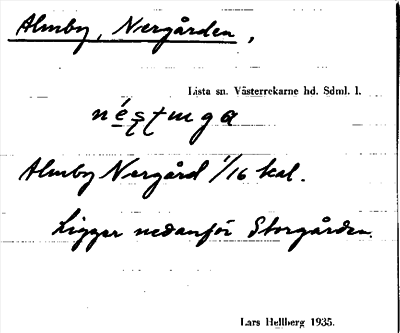 Almby, Nergården,
Lista sn. Västerrekarne hd. Sdml. l.
Almby Nergård 1/16 kal.
Ligger nedanför Storgården.
Lars Hellberg 1935.